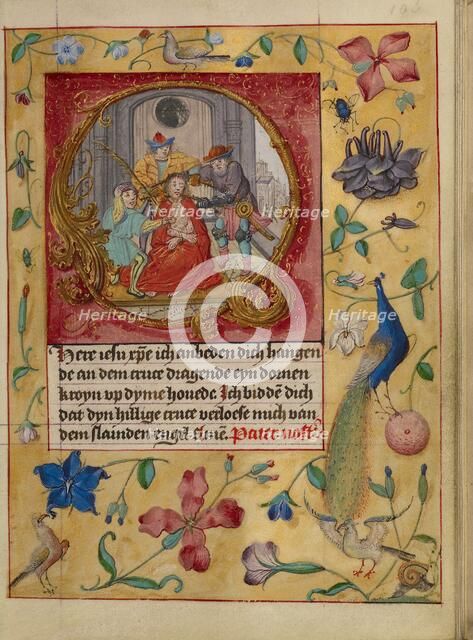 Here ihesu xpe ich anbeden dich hangen
de an dem cruce dragende eyn dornen
kroyn vp dyme houede. Ich bidden dich
dat dyn hillige cruce verloese mich van
dem slainden engel Amen. Pater noster
Heritage
Heritage
Heritage
Heritage
Heritage
Heritage
Heritage